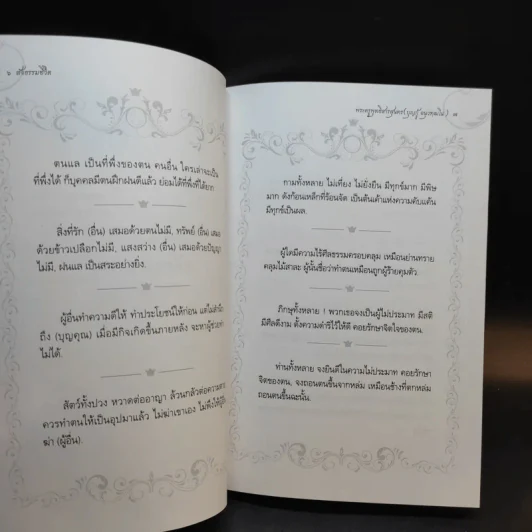 ๖ สัจธรรมชีวิต
ตนแล เป็นที่พึ่งของตน คนอื่น ใครเล่าจะเป็น
ที่พึ่งได้ ก็บุคคลมีตนฝึกฝนดีแล้ว ย่อมได้ที่พึ่งที่ได้ยาก
สิ่งที่รัก (อื่น) เสมอด้วยตนไม่มี, ทรัพย์ (อื่น) เสมอ
ด้วยข้าวเปลือกไม่มี, แสงสว่าง (อื่น) เสมอด้วยปัญญา
ไม่มี, ฝนแล เป็นสระอย่างยิ่ง.
ผู้อื่นทำความดีให้ ทำประโยชน์ให้ก่อน แต่ไม่สำนึก
ถึง (บุญคุณ) เมื่อมีกิจเกิดขึ้นภายหลัง จะหาผู้ช่วย
ไม่ได้.
สัตว์ทั้งปวง หวาดต่ออาญา ล้วนกลัวต่อความตาย
ควรทำตนให้เป็นอุปมาแล้ว ไม่ฆ่าเขาเอง ไม่พึงให้ผู้อื่น
ฆ่า (ผู้อื่น).
กามทั้งหลาย ไม่เที่ยง ไม่ยั่งยืน มีทุกข์มาก มีพิษ
มาก ดังก้อนเหล็กที่ร้อนจัด เป็นต้นเค้าแห่งความคับแค้น
มีทุกข์เป็นผล.
ผู้ใดมีความไร้ศีลธรรมครอบคลุม เหมือนย่านทราย
คลุมไม้สาละ ผู้นั้นชื่อว่าทำตนเหมือนถูกผู้ร้ายคุมตัว.
ภิกษุทั้งหลาย ! พวกเธอจงเป็นผู้ไม่ประมาท มีสติ
มีศีลดีงาม ตั้งความดำริไว้ให้ดี คอยรักษาจิตใจของตน.
ท่านทั้งหลาย จงยินดีในความไม่ประมาท คอยรักษา
จิตของตน, จงถอนตนขึ้นจากหล่ม เหมือนช้างที่ตกหล่ม
ถอนตนขึ้นฉะนั้น.